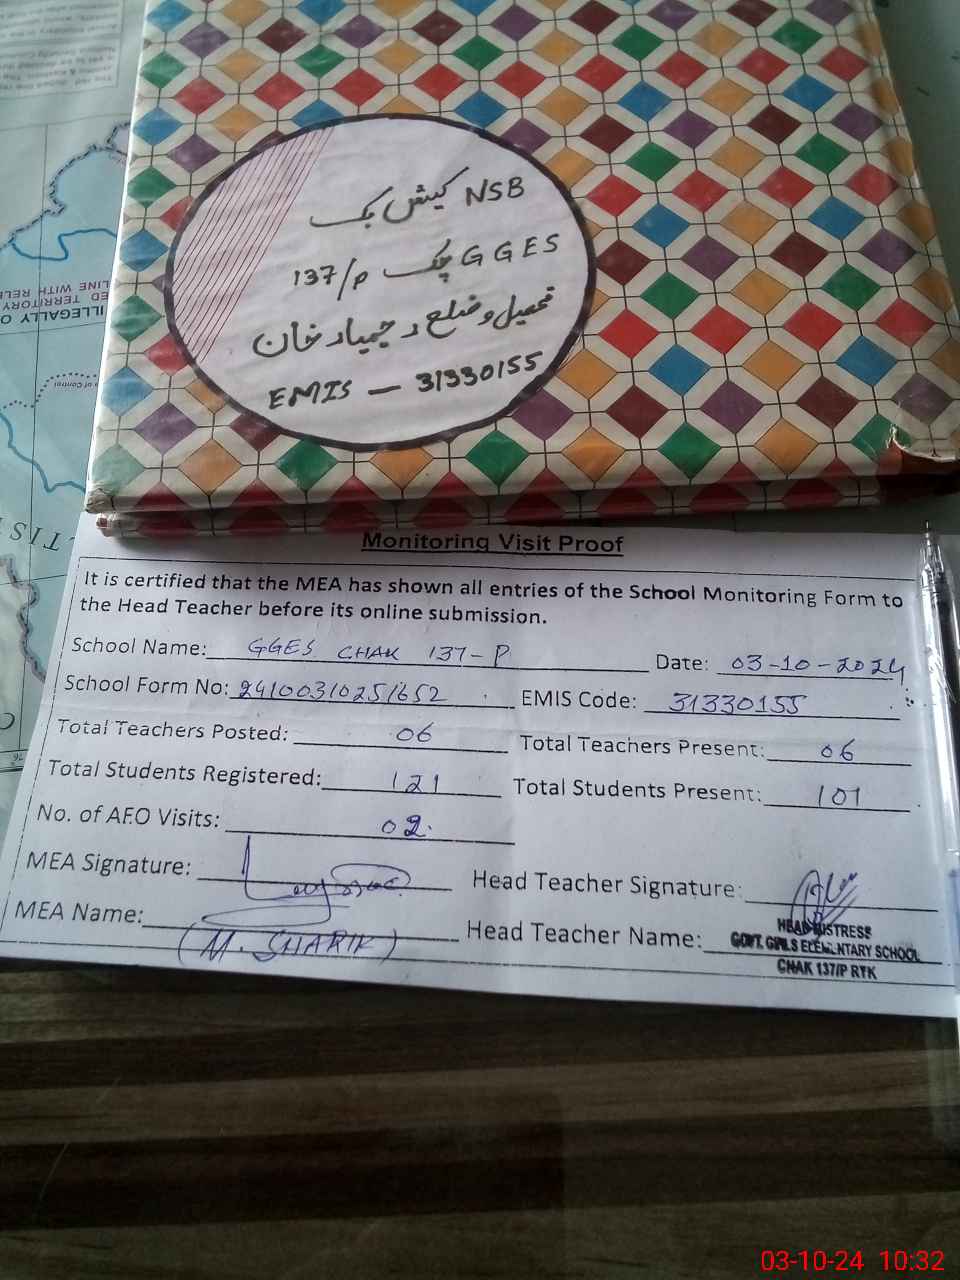 NSB کیش بک
GGES چک 137/P
تحصیل و ضلع رحیمیار خان
EMIS — 31330155
ILLEGALLY O
ED TERRITORY
LINE WITH RELE
Monitoring Visit Proof
It is certified that the MEA has shown all entries of the School Monitoring Form to
the Head Teacher before its online submission.
School Name: GGES CHAK 137-P Date: 03-10-2024
School Form No: 24100310251652 EMIS Code: 31330155
Total Teachers Posted: 06 Total Teachers Present: 06
Total Students Registered: 121 Total Students Present: 101
No. of AEO Visits: 02.
MEA Signature: Head Teacher Signature:
MEA Name: (M. SHARIK) Head Teacher Name:
HEAD MISTRESS
GOVT. GIRLS ELEMENTARY SCHOOL
CHAK 137/P RYK
03-10-24 10:32